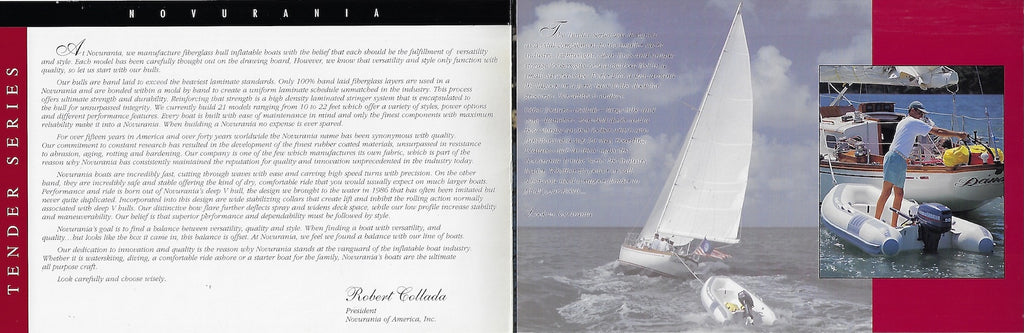 NOVURANIA
TENDER SERIES
At Novurania, we manufacture fiberglass hull inflatable boats with the belief that each should be the fulfillment of versatility
and style. Each model has been carefully thought out on the drawing board. However, we know that versatility and style only function with
quality, so let us start with our hulls.
Our hulls are hand laid to exceed the heaviest laminate standards. Only 100% hand laid fiberglass layers are used in a
Novurania and are bonded within a mold by hand to create a uniform laminate schedule unmatched in the industry. This process
offers ultimate strength and durability. Reinforcing that strength is a high density laminated stringer system that is encapsulated to
the hull for unsurpassed integrity. We currently build 21 models ranging from 10 to 22 feet which offer a variety of styles, power options
and different performance features. Every boat is built with ease of maintenance in mind and only the finest components with maximum
reliability make it into a Novurania. When building a Novurania no expense is ever spared.
For over fifteen years in America and over forty years worldwide the Novurania name has been synonymous with quality.
Our commitment to constant research has resulted in the development of the finest rubber coated materials, unsurpassed in resistance
to abrasion, aging, rotting and hardening. Our company is one of the few which manufactures its own fabric, which is part of the
reason why Novurania has consistently maintained the reputation for quality and innovation unprecedented in the industry today.
Novurania boats are incredibly fast, cutting through waves with ease and carving high speed turns with precision. On the other
hand, they are incredibly safe and stable offering the kind of dry, comfortable ride that you would usually expect on much larger boats.
Performance and ride is born out of Novurania's deep V hull, the design we brought to the water in 1986 that has often been imitated but
never quite duplicated. Incorporated into this design are wide stabilizing collars that create lift and inhibit the rolling action normally
associated with deep V hulls. Our distinctive bow flare further deflects spray and widens deck space, while our low profile increase stability
and maneuverability. Our belief is that superior performance and dependability must be followed by style.
Novurania's goal is to find a balance between versatility, quality and style. When finding a boat with versatility, and
quality...but looks like the box it came in, this balance is offset. At Novurania, we feel we found a balance with our line of boats.
Our dedication to innovation and quality is the reason why Novurania stands at the vanguard of the inflatable boat industry.
Whether it is waterskiing, diving, a comfortable ride ashore or a starter boat for the family, Novurania's boats are the ultimate
all purpose craft.
Look carefully and choose wisely.
Robert Collada
President
Novurania of America, Inc.